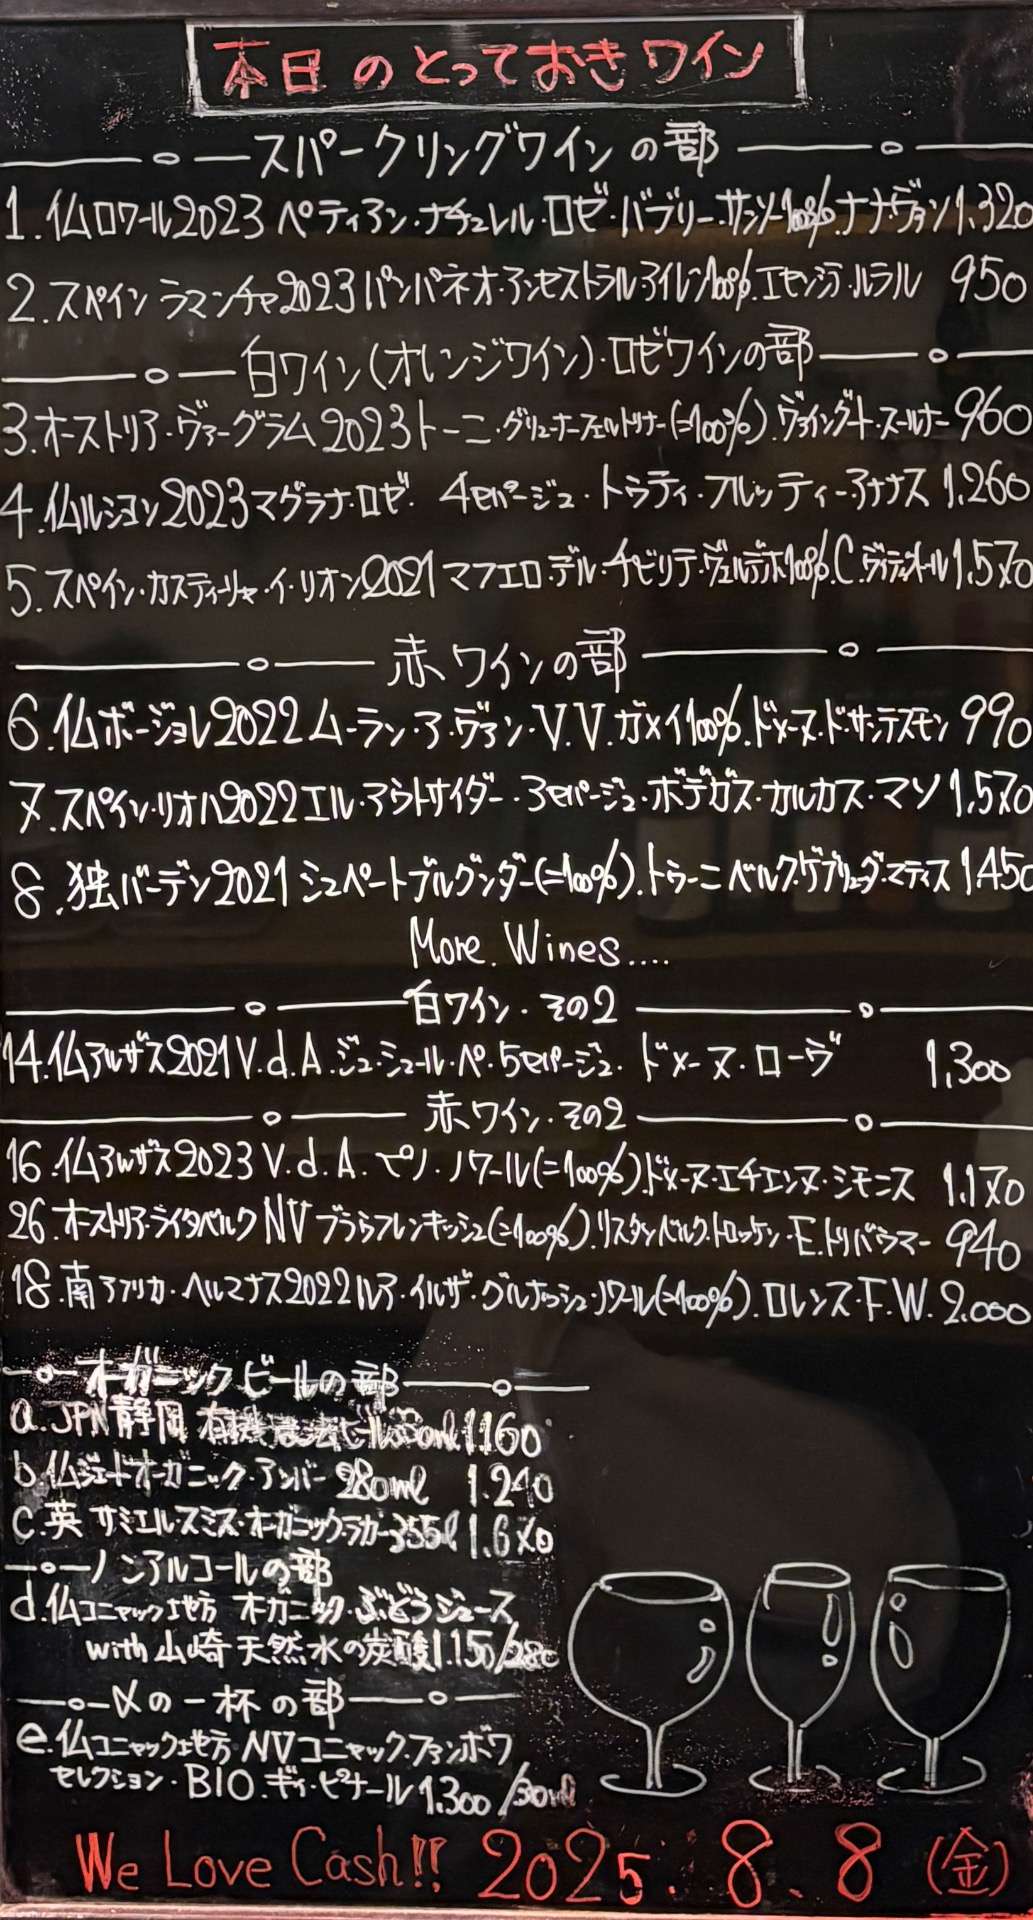 本日のとっておきワイン
スパークリングワインの部
1.仏ロワール2023 ペティアン・ナチュレル・ロゼ・バブリー.サンソー100%.ナナ・ヴァン 1.320
2.スペイン ラマンチャ2023パンパネオ・アンセストラル・アイレン100%.エセンシア・ルラル 950
白ワイン(オレンジワイン)・ロゼワインの部
3.オーストリア・ヴァーグラム2023トーニ・グリューナーフェルトリナー(=100%).ヴァイングート・スールナー 960
4.仏ルション2023マグラナ・ロゼ. 4セパージュ・トゥティ・フルッティーアナナス 1.260
5.スペイン・カスティーリャ・イ・リオン2021マフエロ・デル・チビリテ・ヴェルデホ100%.C.ヴィティオール 1.570
赤ワインの部
6.仏ボージョレ2022ムーラン・ア・ヴァン・V.V.ガメイ100%.ドメーヌ・ド・サンテスモン 990
7.スペイン・リオハ2022エル・アウトサイダー・3セパージュ・ボデガス・カルカス・マソ 1.570
8.独バーデン2021シュペートブルグンダー(=100%).トゥーニベルク・ゲブリューダ・マティス 1.450
More. Wines....
白ワイン・その2
14.仏アルザス2021V.d.A.ジュ・シュール・ペ・5セパージュ・ドメーヌ・ローヴ 1.300
赤ワイン・その2
16.仏アルザス2023 V.d.A.ピノ・ノワール(=100%)ドメーヌ・エチエンヌ・シモニス 1.170
26.オーストリア・ライタベルク NV ブラウフレンキッシュ(=100%).リスタンベルク・トロッケン・E.トリバウマー 940
18.南アフリカ・ヘルマナス2022ルア・イルザ・グルナッシュ・ノワール(=100%).ロレンス・F.W. 2.000
オーガニックビールの部
a.JPN静岡 有機農法ビール 1160
b.仏ジェードオーガニック・アンバー 280ml 1.240
c.英 サミエル・スミス・オーガニックラガー355l 1.670
ノンアルコールの部
d.仏コニャック地方 オーガニック・ぶどうジュース
with 山崎 天然水の炭酸 1.150/280
〆の一杯の部
e.仏コニャック地方 NVコニャック.ファンボワ
セレクション・BIO.ギィ・ピナール 1.300/30ml
We Love Cash!! 2025.8.8 (金)